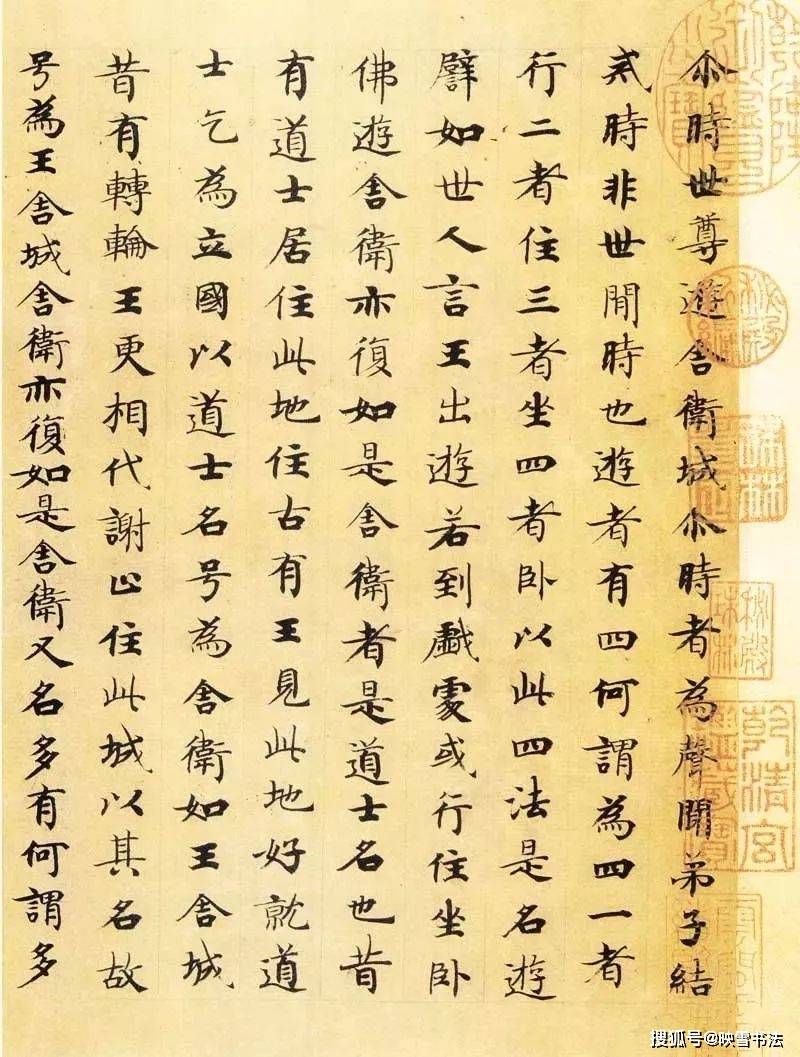 尒時世尊遊舍衛城尒時者為聲聞弟子結
戒時非世間時也遊者有四何謂為四一者
行二者住三者坐四者卧以此四法是名遊
譬如世人言王出遊若到戲處或行住坐卧
佛遊舍衛亦復如是舍衛者是道士名也昔
有道士居住此地住古有王見此地好就道
士乞為立國以道士名号為舍衛如王舍城
昔有轉輪王更相代謝止住此城以其名故
号為王舍城舍衛亦復如是舍衛又名多有何謂多
秘殿珠林
乾清宮鑒藏寶
搜狐号@映雪书法